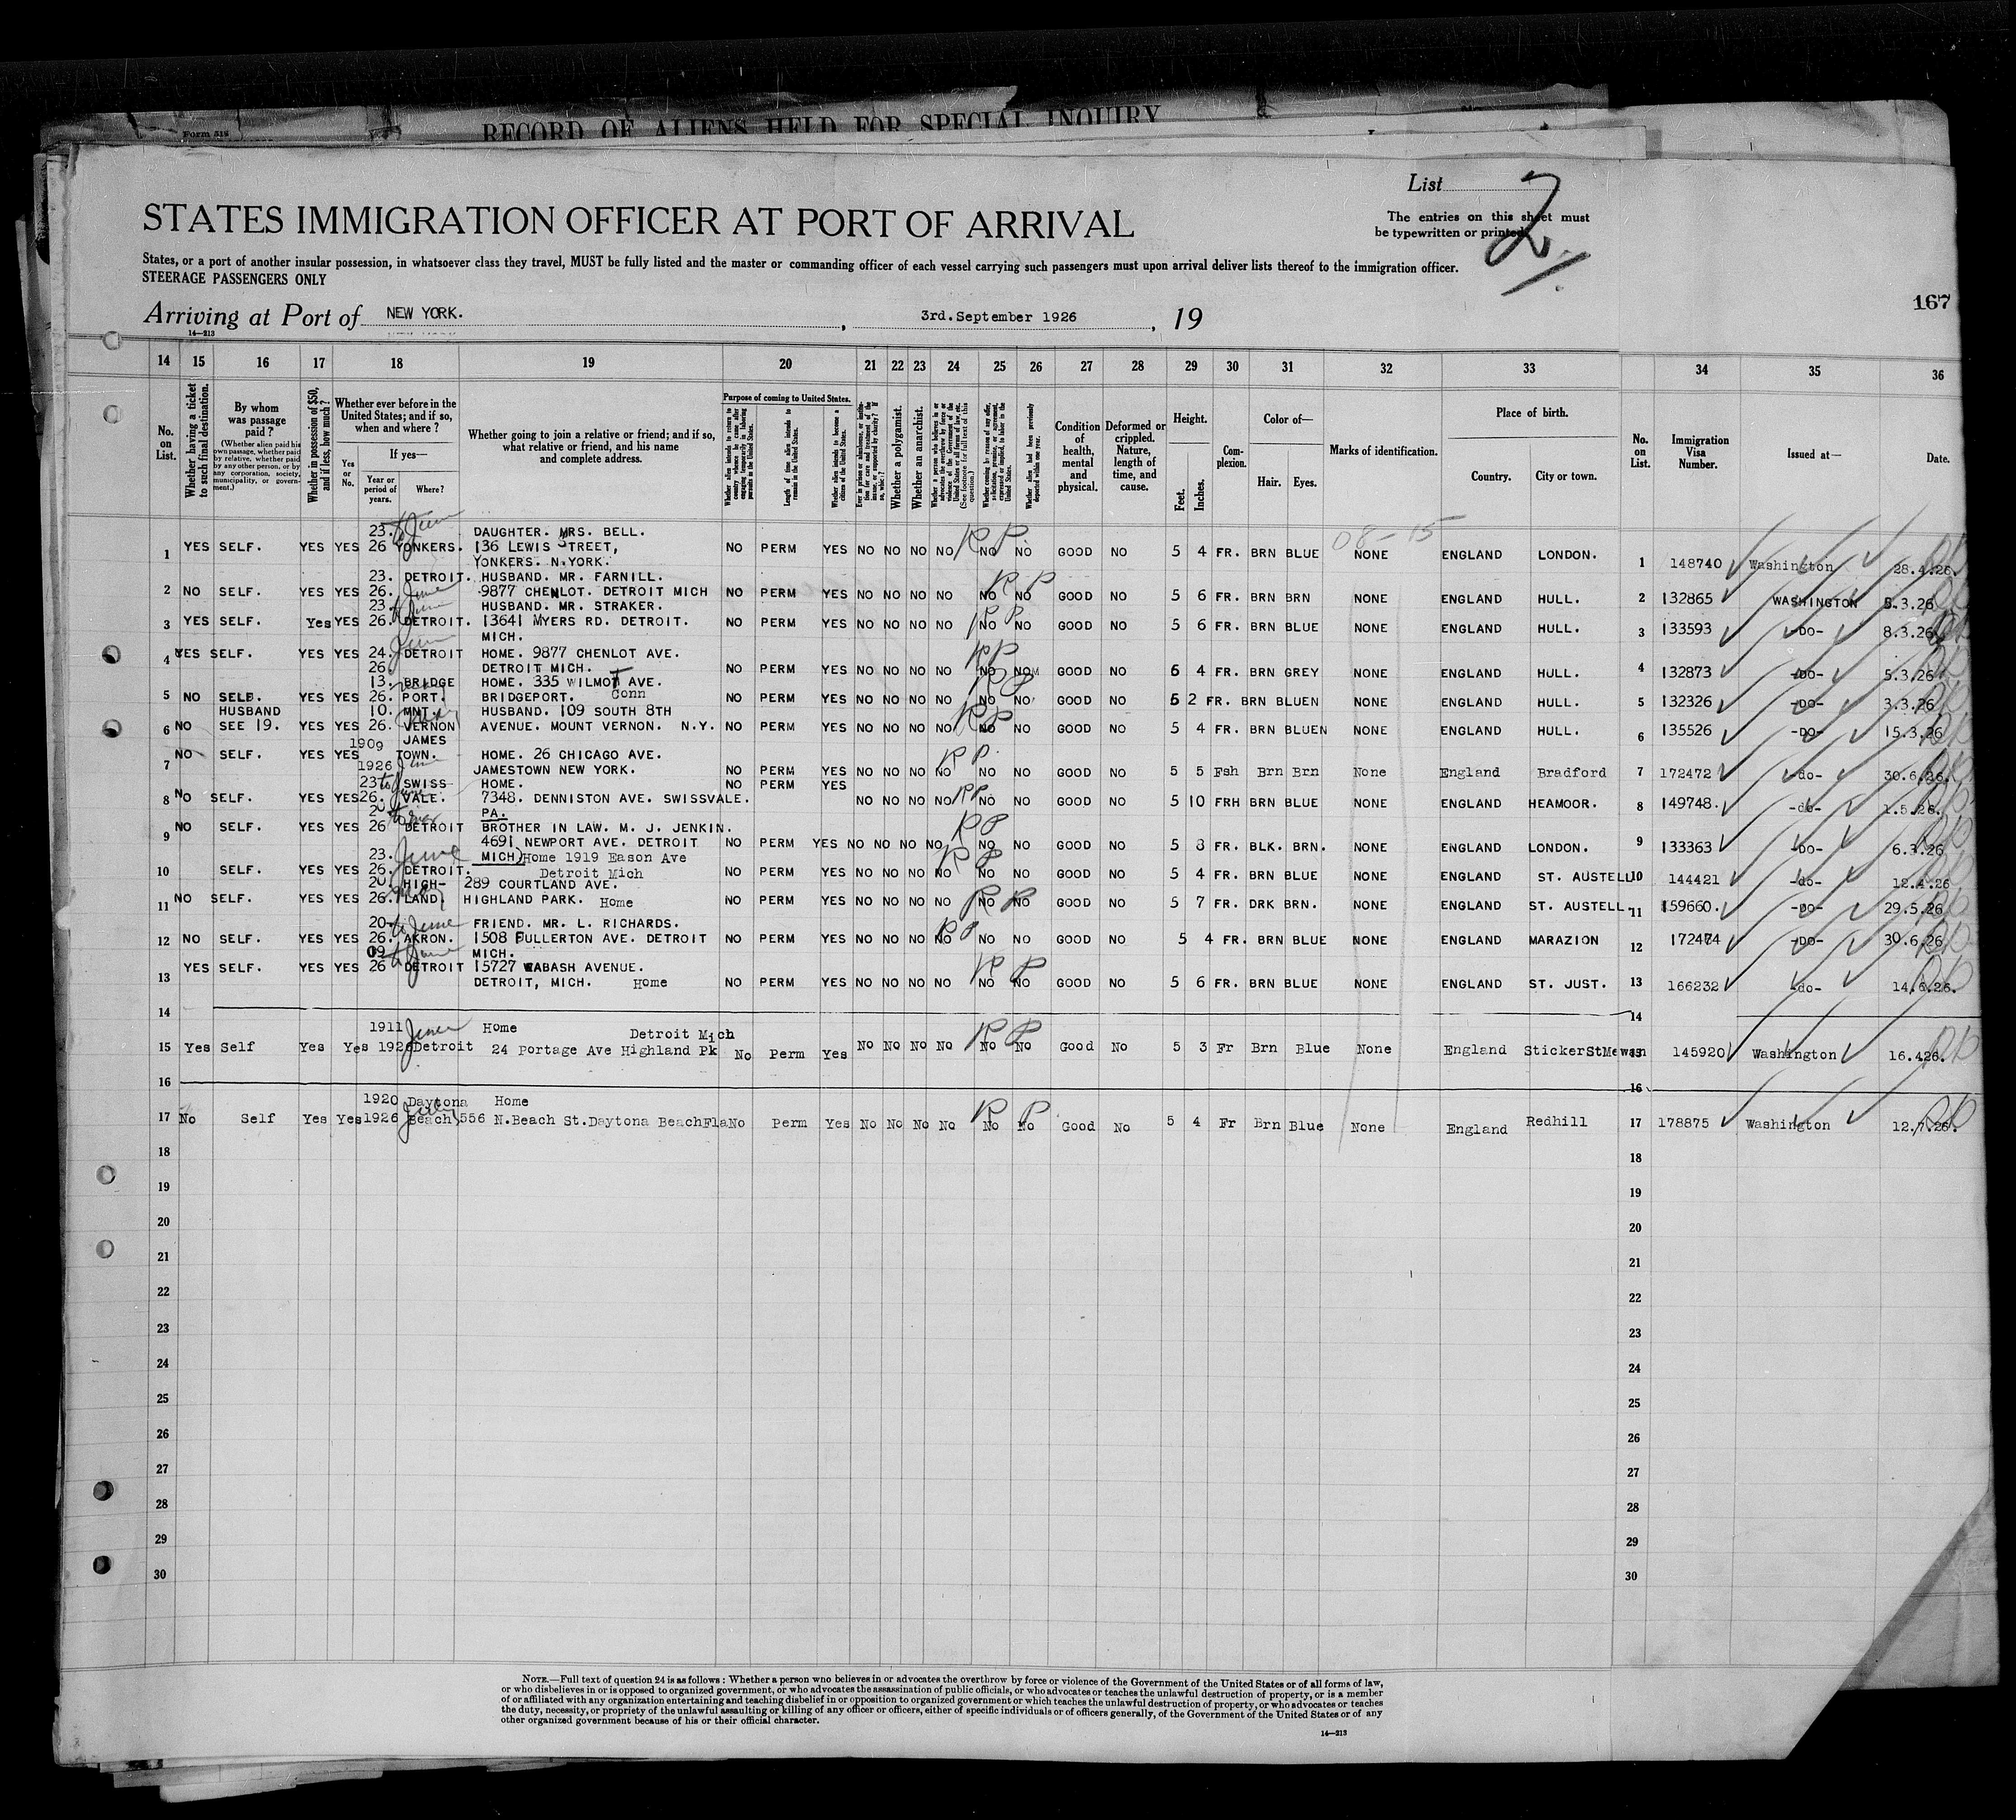 Form 318
RECORD OF ALIENS HELD FOR SPECIAL INQUIRY
List 2
STATES IMMIGRATION OFFICER AT PORT OF ARRIVAL
The entries on this sheet must
be typewritten or printed.
States, or a port of another insular possession, in whatsoever class they travel, MUST be fully listed and the master or commanding officer of each vessel carrying such passengers must upon arrival deliver lists thereof to the immigration officer.
STEERAGE PASSENGERS ONLY
167
Arriving at Port of NEW YORK. , 3rd.September 1926 , 19
14—213
14 15 16 17 18 19 20 21 22 23 24 25 26 27 28 29 30 31 32 33 34 35 36
No. on List.
Whether having a ticket to such final destination.
By whom was passage paid?
(Whether alien paid his own passage, whether paid by relative, whether paid by any other person, or by any corporation, society, municipality, or government.)
Whether in possession of $50, and if less, how much?
Whether ever before in the United States; and if so, when and where?
Yes or No.
If yes—
Year or period of years.
Where?
Whether going to join a relative or friend; and if so, what relative or friend, and his name and complete address.
Purpose of coming to United States.
Length of time alien intends to remain in the United States.
Whether alien intends to become a citizen of the United States.
Whether a polygamist.
Whether an anarchist.
Condition of health, mental and physical.
Deformed or crippled. Nature, length of time, and cause.
Height.
Feet.
Inches.
Complexion.
Color of—
Hair.
Eyes.
Marks of identification.
Place of birth.
Country.
City or town.
No. on List.
Immigration Visa Number.
Issued at—
Date.
08-15
23. to June DAUGHTER. MRS. BELL.
1 YES SELF. YES YES 26 YONKERS. 136 LEWIS STREET, NO PERM YES NO NO NO NO NO NO GOOD NO 5 4 FR. BRN BLUE NONE ENGLAND LONDON. 1 148740 Washington 28.4.26.
YONKERS. N.YORK.
23. DETROIT. HUSBAND. MR. FARNILL.
2 NO SELF. YES YES 26. June 9877 CHENLOT. DETROIT MICH NO PERM YES NO NO NO NO NO NO GOOD NO 5 6 FR. BRN BRN NONE ENGLAND HULL. 2 132865 WASHINGTON 5.3.26
23. to June HUSBAND. MR. STRAKER.
3 YES SELF. Yes YES 26. DETROIT. 13641 MYERS RD. DETROIT. NO PERM YES NO NO NO NO NO NO GOOD NO 5 6 FR. BRN BLUE NONE ENGLAND HULL. 3 133593 -DO- 8.3.26
MICH.
4 YES SELF. YES YES 24. DETROIT HOME. 9877 CHENLOT AVE.
26 DETROIT MICH. NO PERM YES NO NO NO NO NO NO GOOD NO 5 4 FR. BRN GREY NONE ENGLAND HULL. 4 132873 -DO- 5.3.26
13. BRIDGE HOME. 335 WILMOT AVE.
5 NO SELF. YES YES 26. PORT. BRIDGEPORT. Conn NO PERM YES NO NO NO NO NO NO GOOD NO 5 2 FR. BRN BLUEN NONE ENGLAND HULL. 5 132326 -DO- 3.3.26
HUSBAND 10. MNT. HUSBAND. 109 SOUTH 8TH
6 NO SEE 19. YES YES 26. VERNON AVENUE. MOUNT VERNON. N.Y. NO PERM YES NO NO NO NO NO NO GOOD NO 5 4 FR. BRN BLUEN NONE ENGLAND HULL. 6 135526 -DO- 15.3.26
1909 JAMES
NO SELF. YES YES TOWN. HOME. 26 CHICAGO AVE.
7 1926 JAMESTOWN NEW YORK. NO PERM YES NO NO NO NO NO NO GOOD NO 5 5 Fsh Brn Brn None England Bradford 7 172472 -do- 30.6.26.
23 to SWISS HOME. NO PERM YES
8 NO SELF. YES YES 26. VALE. 7348. DENNISTON AVE. SWISSVALE. NO NO NO NO NO NO GOOD NO 5 10 FRH BRN BLUE NONE ENGLAND HEAMOOR. 8 149748. -do- 1.5.26.
PA.
9 NO SELF. YES YES 26 DETROIT BROTHER IN LAW. M. J. JENKIN.
4691 NEWPORT AVE. DETROIT NO PERM YES NO NO NO NO NO NO GOOD NO 5 8 FR. BLK. BRN. NONE ENGLAND LONDON. 9 133363 -DO- 6.3.26
23. June MICH) Home 1919 Eason Ave
10 SELF. YES YES 26. DETROIT. Detroit Mich NO PERM YES NO NO NO NO NO NO GOOD NO 5 4 FR. BRN BLUE NONE ENGLAND ST. AUSTELL 10 144421 -do- 12.4.26
20. HIGH- 289 COURTLAND AVE.
11 NO SELF. YES YES 26. LAND. HIGHLAND PARK. Home NO PERM YES NO NO NO NO NO NO GOOD NO 5 7 FR. DRK BRN. NONE ENGLAND ST. AUSTELL. 11 159660. -DO- 29.5.26
20 to June FRIEND. MR. L. RICHARDS.
12 NO SELF. YES YES 26. AKRON. 1508 FULLERTON AVE. DETROIT NO PERM YES NO NO NO NO NO NO GOOD NO 5 4 FR. BRN BLUE NONE ENGLAND MARAZION 12 172474 -DO- 30.6.26
09 to June MICH.
13 YES SELF. YES YES 26 DETROIT 15727 WABASH AVENUE.
DETROIT, MICH. Home NO PERM YES NO NO NO NO NO NO GOOD NO 5 6 FR. BRN BLUE NONE ENGLAND ST. JUST. 13 166232 -do- 14.6.26.
14 14
1911 June Home Detroit Mich
15 Yes Self Yes Yes 1926 Detroit 24 Portage Ave Highland Pk No Perm Yes No No No No No No Good No 5 3 Fr Brn Blue None England StickerStMewan 15 145920 Washington 16.4.26.
16 16
1920 Daytona Home
17 No Self Yes Yes 1926 July Beach, 556 N.Beach St.Daytona BeachFla No Perm Yes No No No No No No Good No 5 4 Fr Brn Blue None England Redhill 17 178875 Washington 12.7.26.
18 18
19 19
20 20
21 21
22 22
23 23
24 24
25 25
26 26
27 27
28 28
29 29
30 30
NOTE.—Full text of question 24 is as follows: Whether a person who believes in or advocates the overthrow by force or violence of the Government of the United States or of all forms of law,
or who disbelieves in or is opposed to organized government, or who advocates the assassination of public officials, or who advocates or teaches the unlawful destruction of property, or is a member
of or affiliated with any organization entertaining and teaching disbelief in or opposition to organized government or which teaches the unlawful destruction of property, or who advocates or teaches
the duty, necessity, or propriety of the unlawful assaulting or killing of any officer or officers, either of specific individuals or of officers generally, of the Government of the United States or of any
other organized government because of his or their official character.
14—213